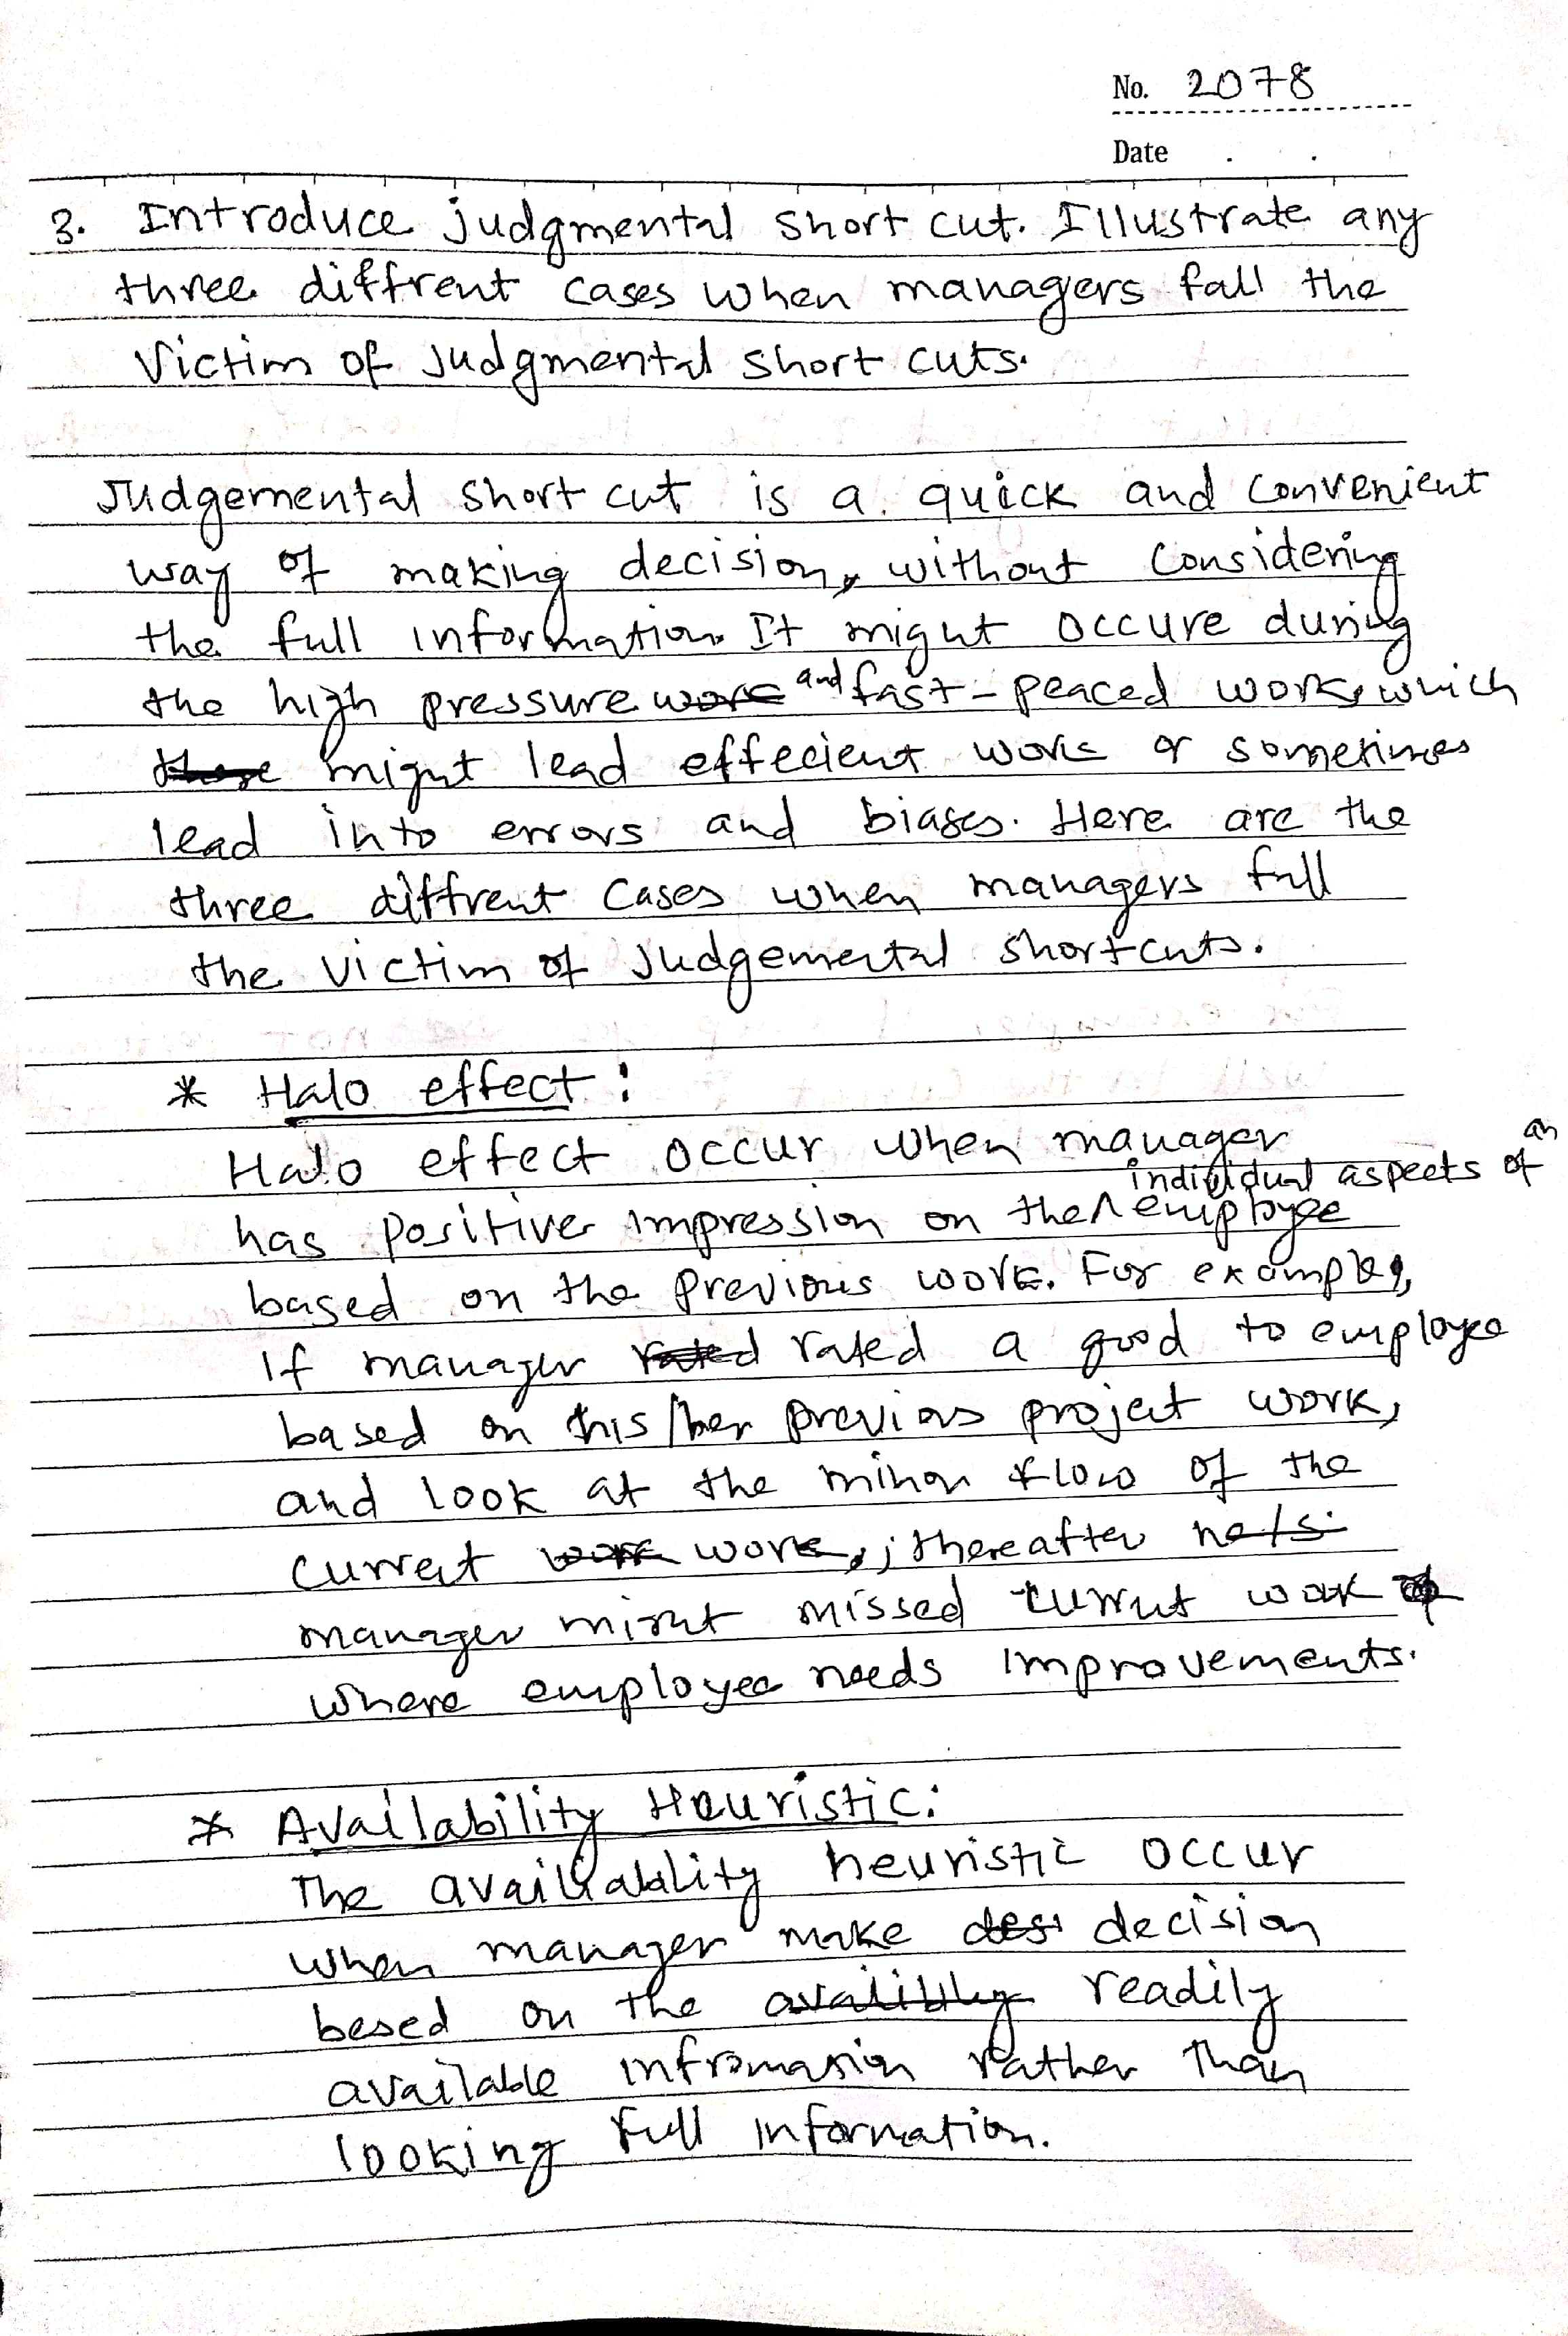 No. 2078
Date . .
3. Introduce judgmental short cut. Illustrate any
three diffrent cases when managers fall the
Victim of Judgmental short cuts.
Judgemental short cut is a quick and convenient
way of making decision, without considering
the full information. It might occure during
the high pressure work and fast-peaced work, which
these might lead effecient work or sometimes
lead into errors and biases. Here are the
three diffrent cases when managers fall
the victim of Judgemental shortcuts.
* Halo effect:
Halo effect occur when manager
has positive impression on the individual aspects of an employee
based on the previous work. For example,
if manager rated rated a good to employee
based on this/her previous project work,
and look at the minor flow of the
current work work, ; thereafter
manager might missed current work
where employee needs improvements.
* Availability Heuristic:
The availability heuristic occur
when manager make des decision
besed on the availiblity readily
available infromasion rather than
looking full information.